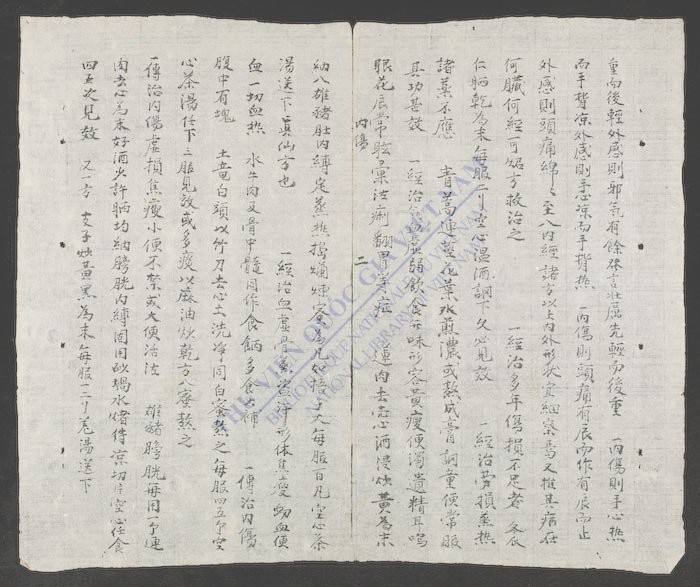 重而後輕外感則邪氣有餘發言壯厲先輕而後重 一內傷則手心熱
而手背凉外感則手心凉而手背熱 一內傷則頭痛有辰而作有辰而止
外感則頭痛綿綿至八內經諸方以上內外形狀宜細察焉又推其病在
何臟何經可紹方救治之 一經治多年傷損不足者 冬瓜
仁晒乾為末每服二刂空心溫酒調下久必見效 一經治勞損蒸熱
諸藥不應 青蒿連莖花葉水煎濃或熬成膏調童便常服
其功甚效 一經治 虛弱飲食無味形容黃瘦便濁遺精耳鳴
眼花辰常眩暈法痢翻胃等症 蓮肉去心酒浸炒黃為末
內傷
二
納入雄豬肚內縛定蒸熱搗爛煉蜜為丸如梧子大每服百丸空心茶
湯送下真仙方也 一經治血虛骨 形体焦瘦 血便
血一切血热 水牛肉及骨中髓同作食餌多食大補 一傳治內傷
腹中有塊 土竜白頭以竹刀去心土洗净同白蜜熬之每服四五 空
心茶湯任下三服見效或多痰以麻油炒乾方入蜜熬之
一傳治內傷虛損焦瘦小便不禁或大便治法 雄豬膀胱每用 連
肉去心為末好酒火許晒均納膀胱內縛固用砂堝水煮待凉切片空心任食
四五次見效 又方 支子炒黃黑為末每服一二刂羌湯送下
THƯ VIỆN QUỐC GIA VIỆT NAM
BIBLIOTHÈQUE NATIONALE DU VIETNAM
NATIONAL LIBRARY OF VIETNAM